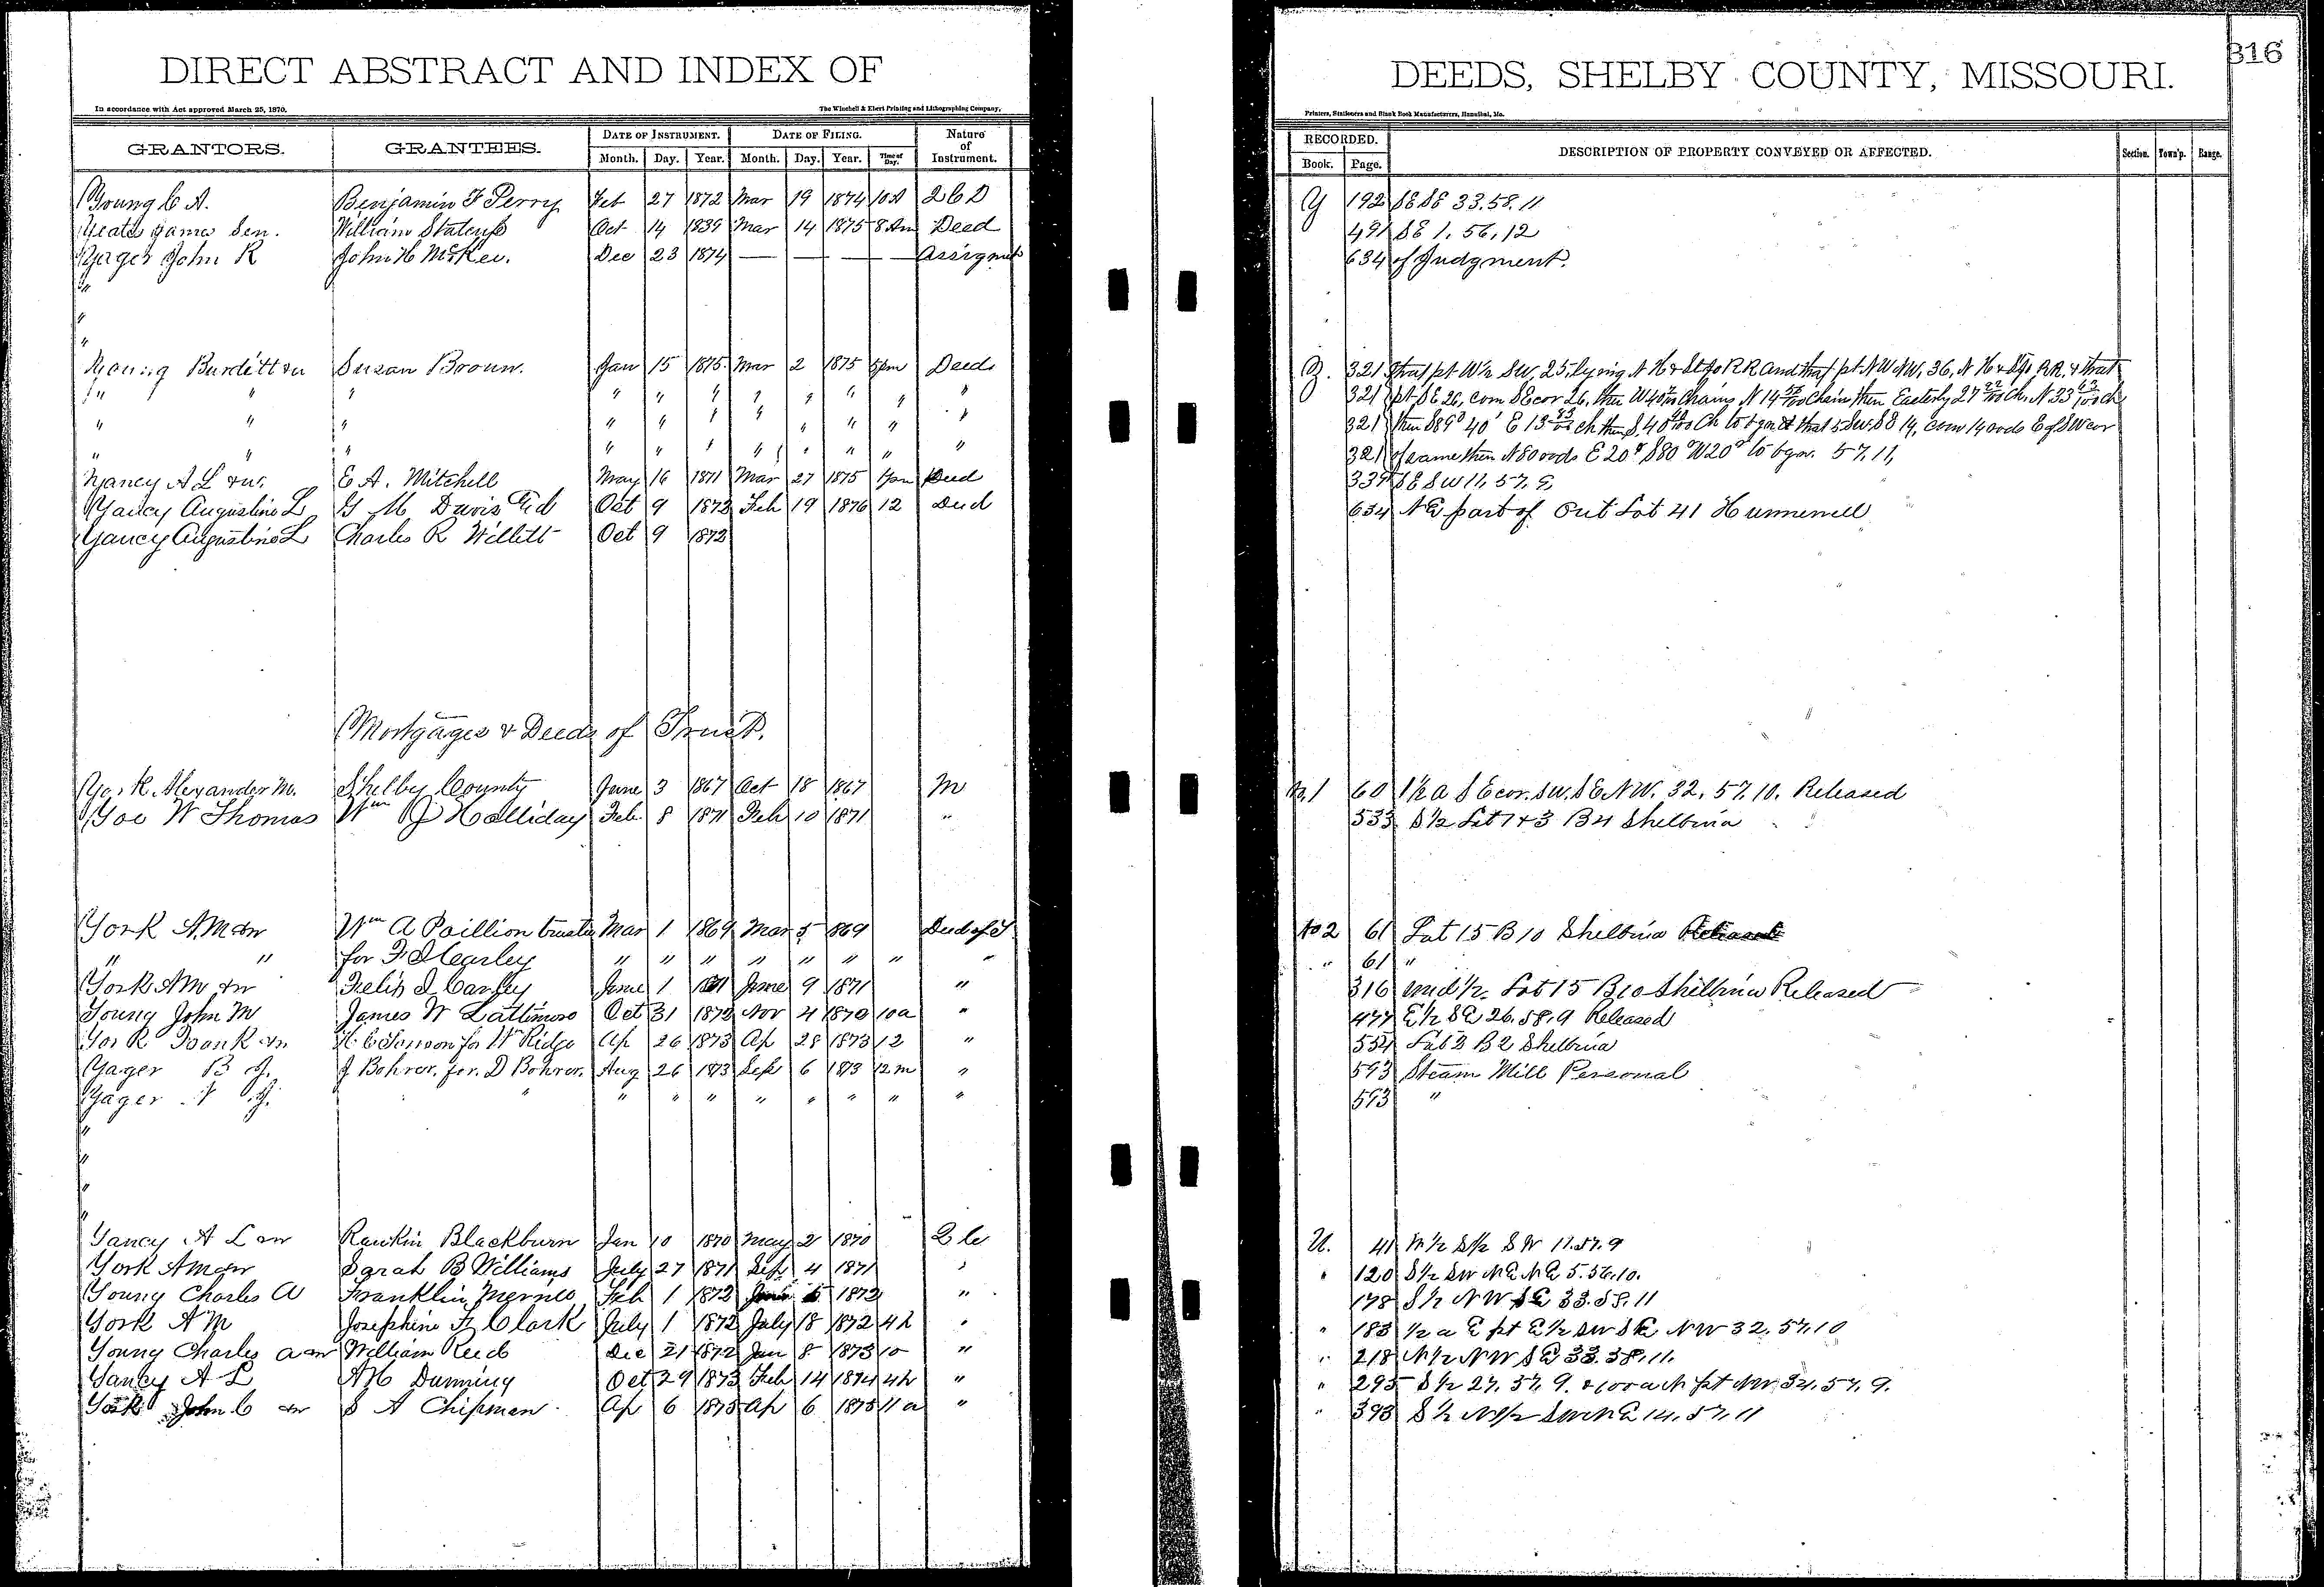 DIRECT ABSTRACT AND INDEX OF
In accordance with Act approved March 25, 1870.
The Winchell & Ebert Printing and Lithographing Company,
GRANTORS. GRANTEES. DATE OF INSTRUMENT. DATE OF FILING. Nature of Instrument.
Month. Day. Year. Month. Day. Year. Time of Day.
Young C A. Benjamin F Perry Feb 27 1872 Mar 19 1874 10A Q C D
Yeats James Sen. William Oct 14 1839 Mar 14 1875 8 Am Deed
Yager John R John H McKee. Dec 23 1874 — — — — Assignmt
"
"
"
Young Burditt &w Susan Broun. Jan 15 1875. Mar 2 1875 5pm Deed
" " " " " " " " " " "
" " " " " " " " " "
" " " " " " " " " " "
Yancy A L &w. E A. Mitchell May 16 1871 Mar 27 1875 4pm Deed
Yancy Augustine L G M Davis Oct 9 1872 Feb 19 1876 12 Deed
Yancy Augustine L Charles R Willett Oct 9 1872
Mortgages & Deeds of Trust.
York Alexander M. Shelby County June 3 1867 Oct 18 1867 M
Yoe W Thomas Wm J Holliday Feb 8 1871 Feb 10 1871 "
York A.M &w Wm A Poillion trustee Mar 1 1869 Mar 5 1869 Deed of T
" " for F I Carley " " " " " " " "
York AM &w Felix I Carley June 1 1871 June 9 1871 "
Young John M James W Lattimore Oct 31 1872 Nov 4 1872 10a "
York Frank &w H C for Wm Ridge Ap 26 1873 Ap 28 1873 12 "
Yager B J. J Bohrer. for. D Bohrer. Aug 26 1873 Sep 6 1873 12 m "
Yager J. " " " " " " " " "
"
"
"
"
Yancy A L &w Rankin Blackburn Jan 10 1870 May 2 1870 Q C
York AM &w Sarah B Williams July 27 1871 Sep 4 1871 "
Young Charles A Franklin Feb 1 1872 5 1872 "
York A M Josephine F. Clark July 1 1872 July 18 1872 4h "
Young Charles A &w William Reed Dec 21 1872 Jan 8 1873 10 "
Yancy A L A H Dunning Oct 29 1873 Feb 14 1874 4h "
York John C &w S A Chipman. Ap 6 1875 Ap 6 1875 11 a "
DEEDS, SHELBY COUNTY, MISSOURI.
316
Printers, Stationers and Blank Book Manufacturers, Hannibal, Mo.
RECORDED. DESCRIPTION OF PROPERTY CONVEYED OR AFFECTED. Section. Town'p. Range.
Book. Page.
Y 192 SE SE 33.58.11
491 SE 1. 56, 12
634 of Judgment.
Z. 321 that pt W½ SW, 25, lying N H & St Jo R R and that pt NW NW, 36, N H & St Jo RR. & that
321 pt SE 26, com SE cor 26, then W 40 chains N 14 chain then Easterly 27 ch, N 33 ch
321 then S 89° 40' E 13 ch then S, 40 ch to bgn & that SW SE 14, com 14 rods E of SW cor
321 of same then N 80 rods E 20 S 80 W 20 to bgn. 57, 11,
339 SE SW 11, 57, 9,
634 NE part of Out Lot 41 Hunnewell
No. 1 60 1½ a S E cor. SW. SE NW. 32. 57. 10. Released
533 S ½ Lot 1 & 3 B 4 Shelbina
No 2 61 Lot 15 B 10 Shelbina Released
" 61 "
316 und ½. Lot 15 B10 Shelbina Released
477 E ½ SE 26. 58. 9 Released
554 Lot 2 B 2 Shelbina
593 Steam Mill Personal
593 "
U. 41 N ½ S ½ SW 11.57.9
" 120 S ½ SW NE NE 5.56.10.
178 S ½ NW SE 33.58.11
" 183 ½ a E pt E ½ SW SE NW 32. 57.10
" 218 N ½ NW SE 33.58.11.
" 295 S ½ 27. 57. 9. & 100 a N pt NW 34. 57. 9.
" 393 S ½ N ½ SW NE 14. 57. 11